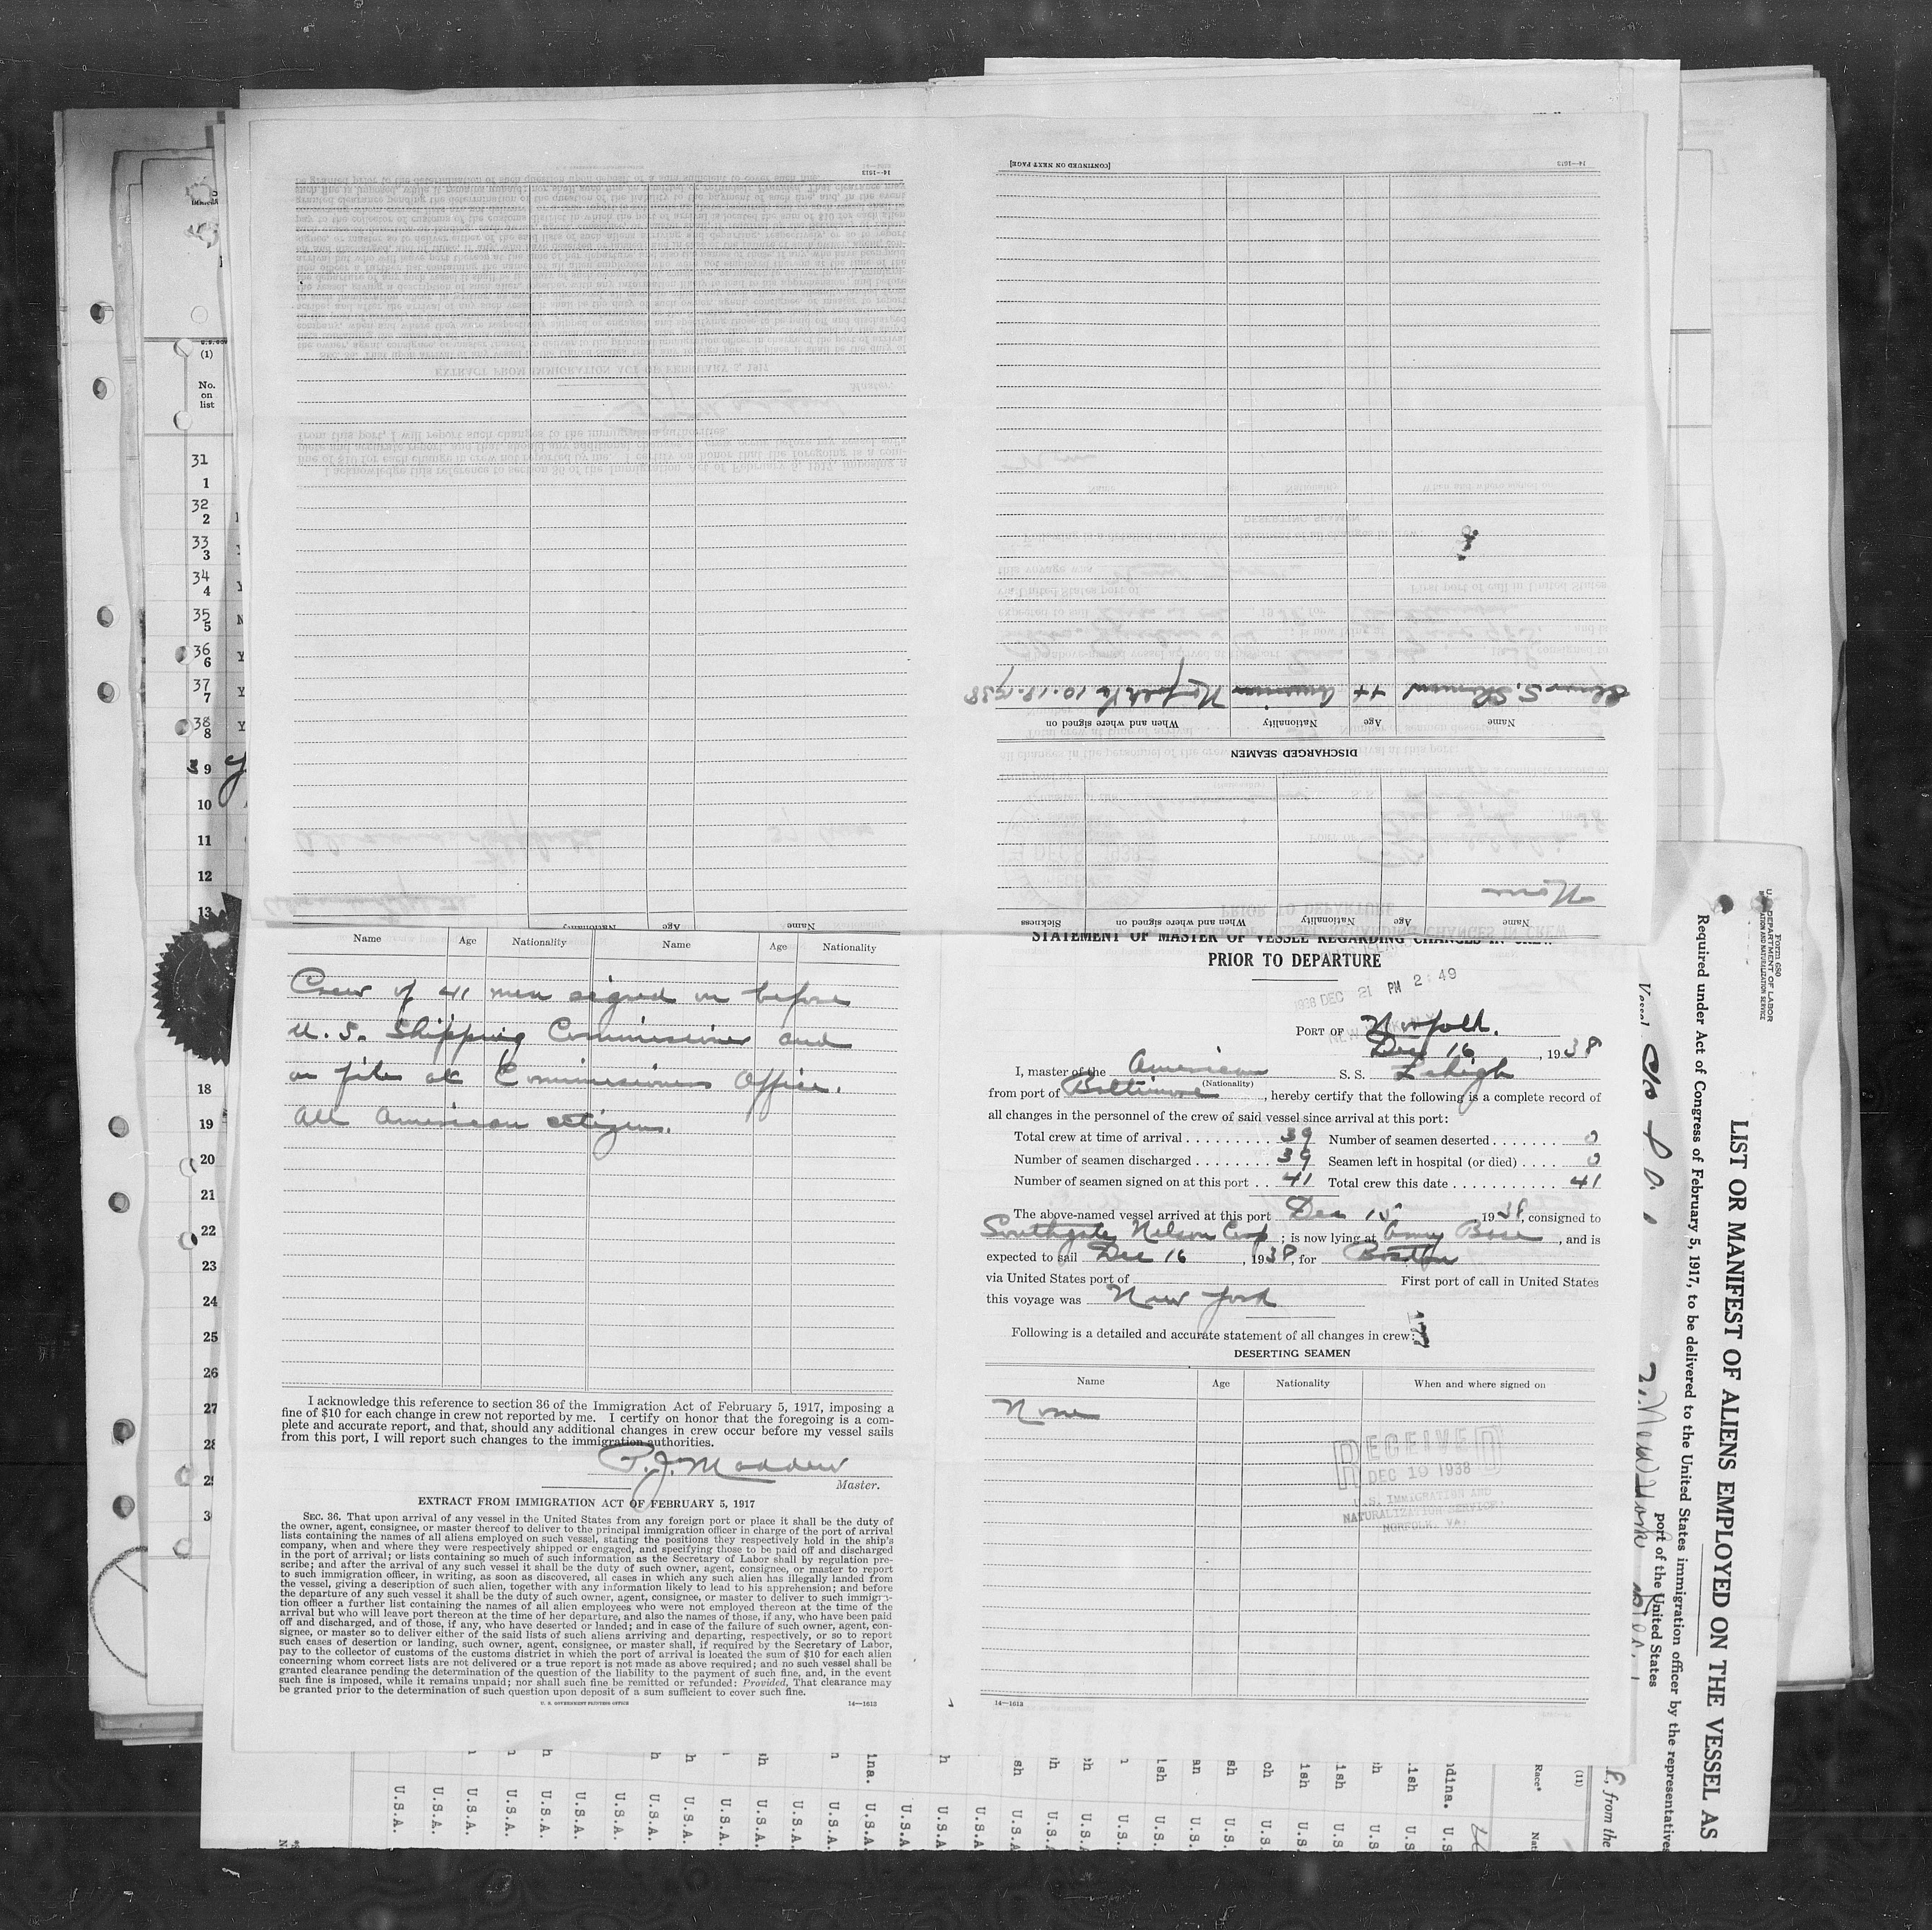 STATEMENT OF MASTER OF VESSEL REGARDING CHANGES IN CREW
PRIOR TO DEPARTURE
1938 DEC 21 PM 2:49
PORT OF Norfolk.
Dec 16, 1938
I, master of the American S. S. Lehigh
(Nationality)
from port of Baltimore, hereby certify that the following is a complete record of
all changes in the personnel of the crew of said vessel since arrival at this port:
Total crew at time of arrival . . . . . . . . . 39 Number of seamen deserted . . . . . . . 0
Number of seamen discharged . . . . . . . 39 Seamen left in hospital (or died) . . . . 0
Number of seamen signed on at this port . . 41 Total crew this date . . . . . . . . . . . . 41
The above-named vessel arrived at this port Dec 15 1938, consigned to
Southgate Nelson Corp; is now lying at Army Base, and is
expected to sail Dec 16, 1938, for Boston
via United States port of First port of call in United States
this voyage was New York
Following is a detailed and accurate statement of all changes in crew:
DESERTING SEAMEN
Name Age Nationality When and where signed on
None
RECEIVED
DEC 19 1938
U.S. IMMIGRATION AND
NATURALIZATION SERVICE,
NORFOLK, VA.
14—1613
Name Age Nationality Name Age Nationality
Crew of 41 men signed on before
U.S. Shipping Commissioner and
on file at Commissioners Office.
All American citizens.
I acknowledge this reference to section 36 of the Immigration Act of February 5, 1917, imposing a
fine of $10 for each change in crew not reported by me. I certify on honor that the foregoing is a com-
plete and accurate report, and that, should any additional changes in crew occur before my vessel sails
from this port, I will report such changes to the immigration authorities.
P. J. Madden
Master.
EXTRACT FROM IMMIGRATION ACT OF FEBRUARY 5, 1917
SEC. 36. That upon arrival of any vessel in the United States from any foreign port or place it shall be the duty of
the owner, agent, consignee, or master thereof to deliver to the principal immigration officer in charge of the port of arrival
lists containing the names of all aliens employed on such vessel, stating the positions they respectively hold in the ship's
company, when and where they were respectively shipped or engaged, and specifying those to be paid off and discharged
in the port of arrival; or lists containing so much of such information as the Secretary of Labor shall by regulation pre-
scribe; and after the arrival of any such vessel it shall be the duty of such owner, agent, consignee, or master to report
to such immigration officer, in writing, as soon as discovered, all cases in which any such alien has illegally landed from
the vessel, giving a description of such alien, together with any information likely to lead to his apprehension; and before
the departure of any such vessel it shall be the duty of such owner, agent, consignee, or master to deliver to such immigra-
tion officer a further list containing the names of all alien employees who were not employed thereon at the time of the
arrival but who will leave port thereon at the time of her departure, and also the names of those, if any, who have been paid
off and discharged, and of those, if any, who have deserted or landed; and in case of the failure of such owner, agent, con-
signee, or master so to deliver either of the said lists of such aliens arriving and departing, respectively, or so to report
such cases of desertion or landing, such owner, agent, consignee, or master shall, if required by the Secretary of Labor,
pay to the collector of customs of the customs district in which the port of arrival is located the sum of $10 for each alien
concerning whom correct lists are not delivered or a true report is not made as above required; and no such vessel shall be
granted clearance pending the determination of the question of the liability to the payment of such fine, and, in the event
such fine is imposed, while it remains unpaid; nor shall such fine be remitted or refunded: Provided, That clearance may
be granted prior to the determination of such question upon deposit of a sum sufficient to cover such fine.
U. S. GOVERNMENT PRINTING OFFICE 14—1613
Name Age Nationality When and where signed on Sickness
None
DISCHARGED SEAMEN
Name Age Nationality When and where signed on
S. Sherman 44 American Norfolk Va 10.18.1938
[CONTINUED ON NEXT PAGE] 14—1613
Name Age Nationality
14—1613
(1)
No.
on
list
31
1
32
2
33
3
34
4
35
5
36
6
37
7
38
8
9
10
11
12
13
18
19
20
21
22
23
24
25
26
27
28
Form 680
U. S. DEPARTMENT OF LABOR
IMMIGRATION AND NATURALIZATION SERVICE
LIST OR MANIFEST OF ALIENS EMPLOYED ON THE VESSEL AS
Required under Act of Congress of February 5, 1917, to be delivered to the United States immigration officer by the representatives
Vessel
port of the United States
New York
, from the
(11)
Race*
U.S.A. U.S.A. U.S.A. U.S.A. U.S.A. U.S.A. U.S.A. U.S.A. U.S.A. U.S.A. U.S.A. U.S.A. U.S.A. U.S.A.